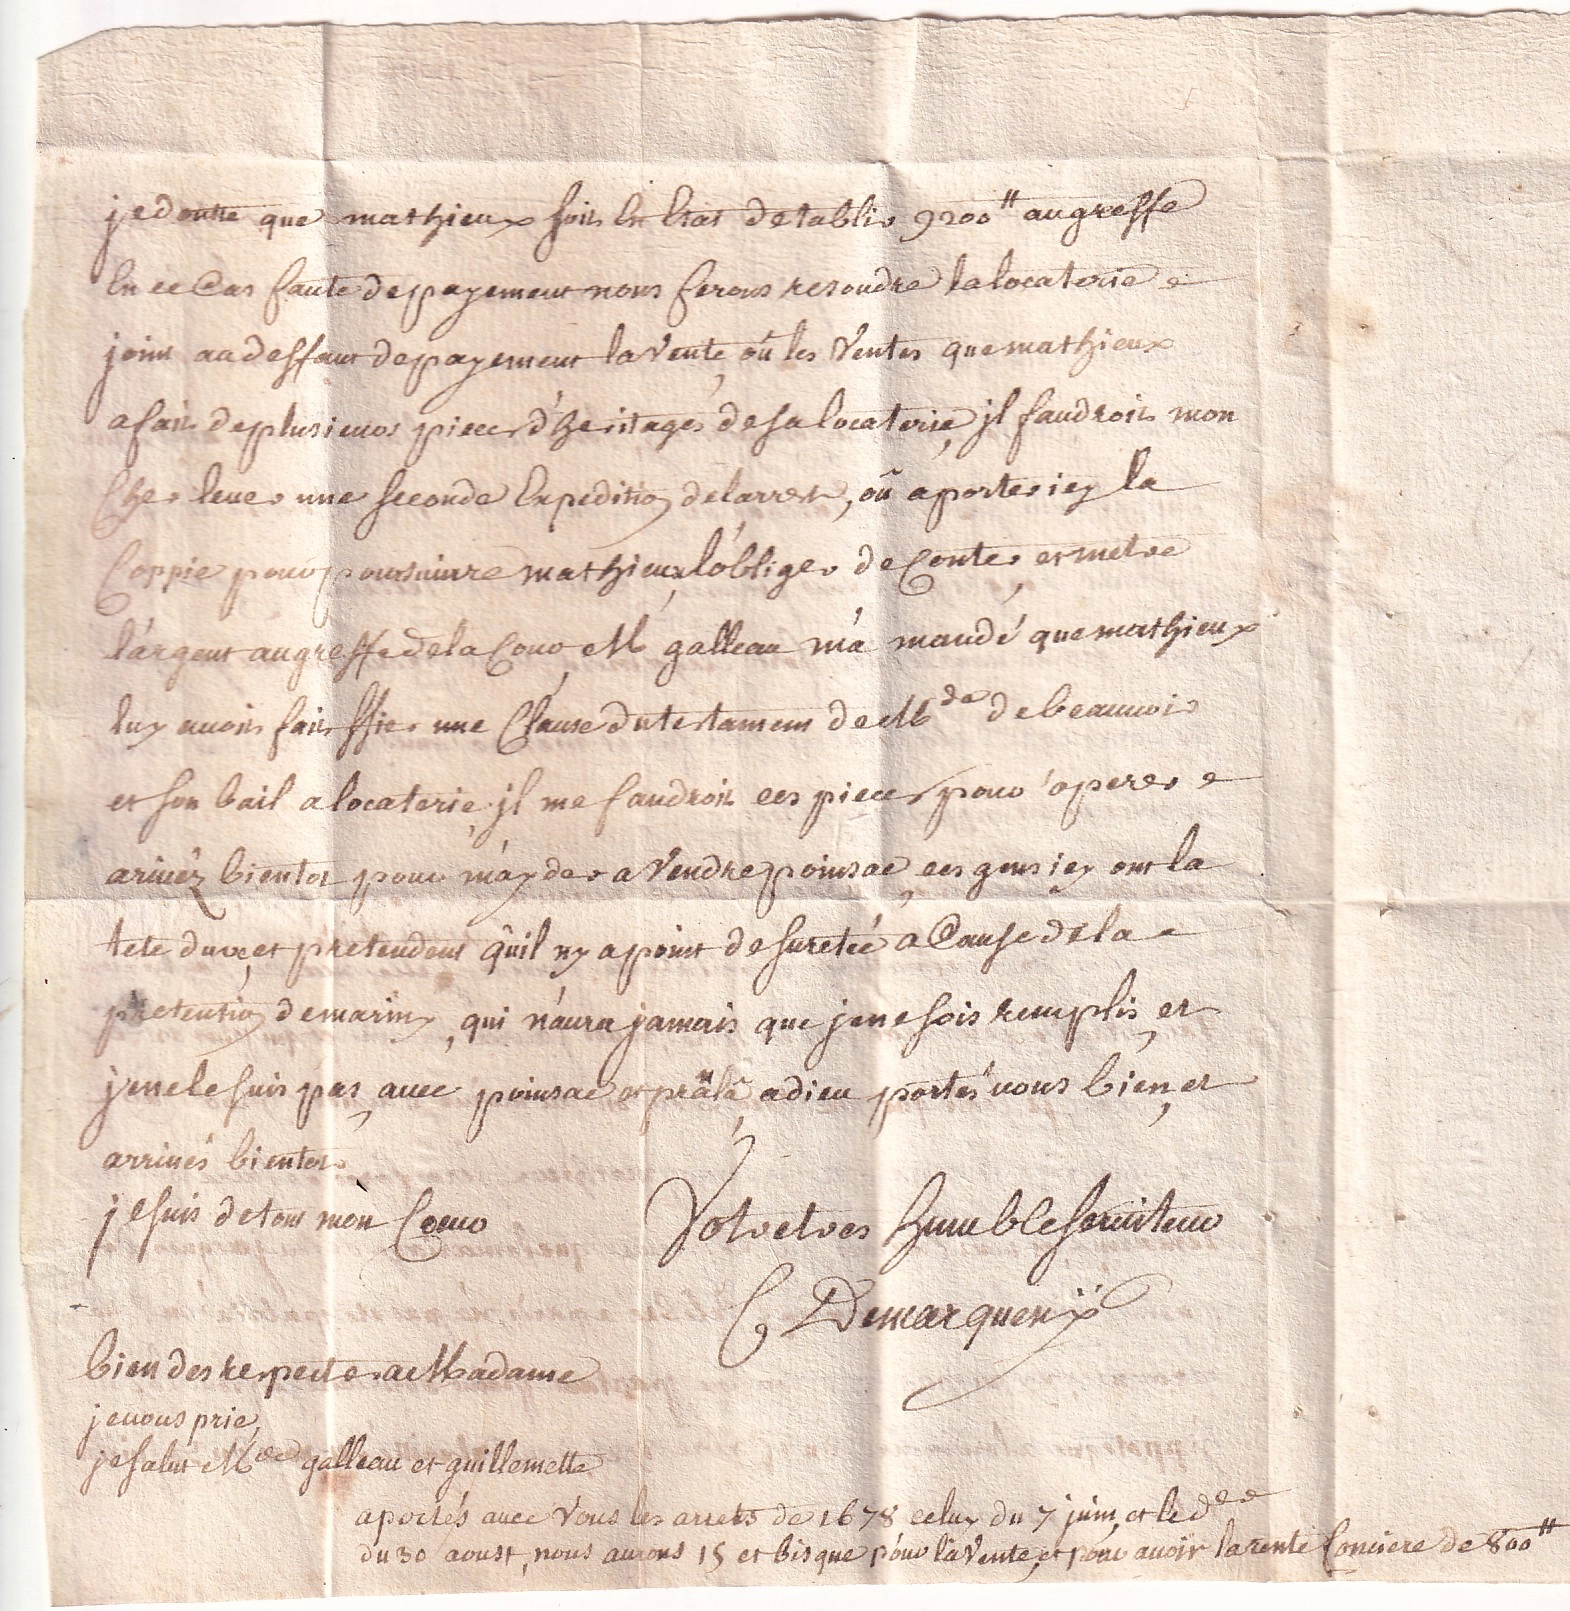 je doutte que mathieux soit En Etat detablir 9200# au greffe
En ce Cas faute de payement nous ferons resoudre la locaterie
joint au deffaut de payement la Vente, où les Ventes que mathieux
a fait de plusieurs pieces d'heritages de sa locaterie, jl faudroit mon
Cher lever une seconde Expedition de larrest, où aporter icy la
Coppie pour poursuivre mathieux, l'obliger de Conter, et metre
l'argent au greffe de la Cour, M galleau m'a mandé que mathieux
luy avoit fait une Clause du testament de Mde de beauvoir
et son bail a locaterie, jl me faudroit ces pieces pour operer
arivéz bientot pour m'ayder a Vendre poinsac, ces gens icy ont la
tete dure, et pretendent qûil ny a point de sureteé a Cause de la
pretention de marin, qui n'aura jamais que je ne sois remplis, et
je ne le suis pas, avec poinsac et adieu portés vous bien, et
arrivés bientot
je suis de tout mon Coeur Votre tres humble serviteur
Demarquenÿ
bien des respects a Madame
je vous prie,
je salut Mde galleau et guillemette
aportés avec Vous les arrets de 1678 celuy du 7 juin, et le d
du 30 aoust, nous aurons 15 et bisque pour la Vente, et pour avoir la rente fonciere de 800#